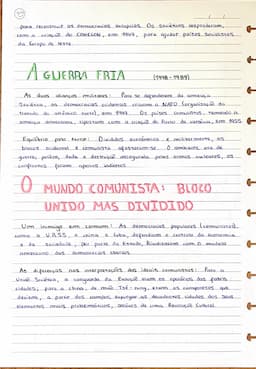 para reconstruir as democracias europeias. Os soviéticos responderam,
com a criação do COMECON, em 1949, para ajudar países socialistas
da Europa de Leste.
A GUERRA FRIA (1948-1989)
As duas alianças militares: Para se defenderem da ameaça
Soviética, as democracias ocidentais criaram a NATO (organização do
tratado do atlântico norte), em 1949. Os países comunistas, temendo a
ameaça americana, ripostam com a criação do Pacto de Varsóvia, em 1955
Equilíbrio pelo terror: Divididos económica e militarmente, os
blocos ocidental e comunista afastaram-se. O ambiente, era de
guerra, porém, dada a destruição assegurada pelas armas nucleares, os
confrontos foram apenas indiretos.
O MUNDO COMUNISTA: BLOCO
UNIDO MAS DIVIDIDO
Um inimigo em comum: As democracias populares (comunistas),
como a U.R.S.S. e China e Cuba, defendiam o controlo da economia
e da sociedade, por parte do Estado, rivalizavam com o modelo
americano das democracias liberais.
As diferenças nas interpretações dos ideais comunistas: Para a
União Soviética, a vanguarda da Revolução eram os operários das fortes
cidades; para a China, de Mao Tsé-Tung, eram os camponeses que
deviam, a partir dos campos, expurgar as decadentes cidades dos seus
elementos mais problemáticos, através de uma Revolução Cultural.